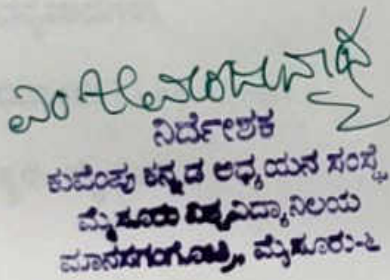 ಎಂ
ನಿರ್ದೇಶಕ
ಕುವೆಂಪು ಕನ್ನಡ ಅಧ್ಯಯನ ಸಂಸ್ಥೆ
ಮೈಸೂರು ವಿಶ್ವವಿದ್ಯಾನಿಲಯ
ಮಾನಸಗಂಗೋತ್ರಿ, ಮೈಸೂರು-೬